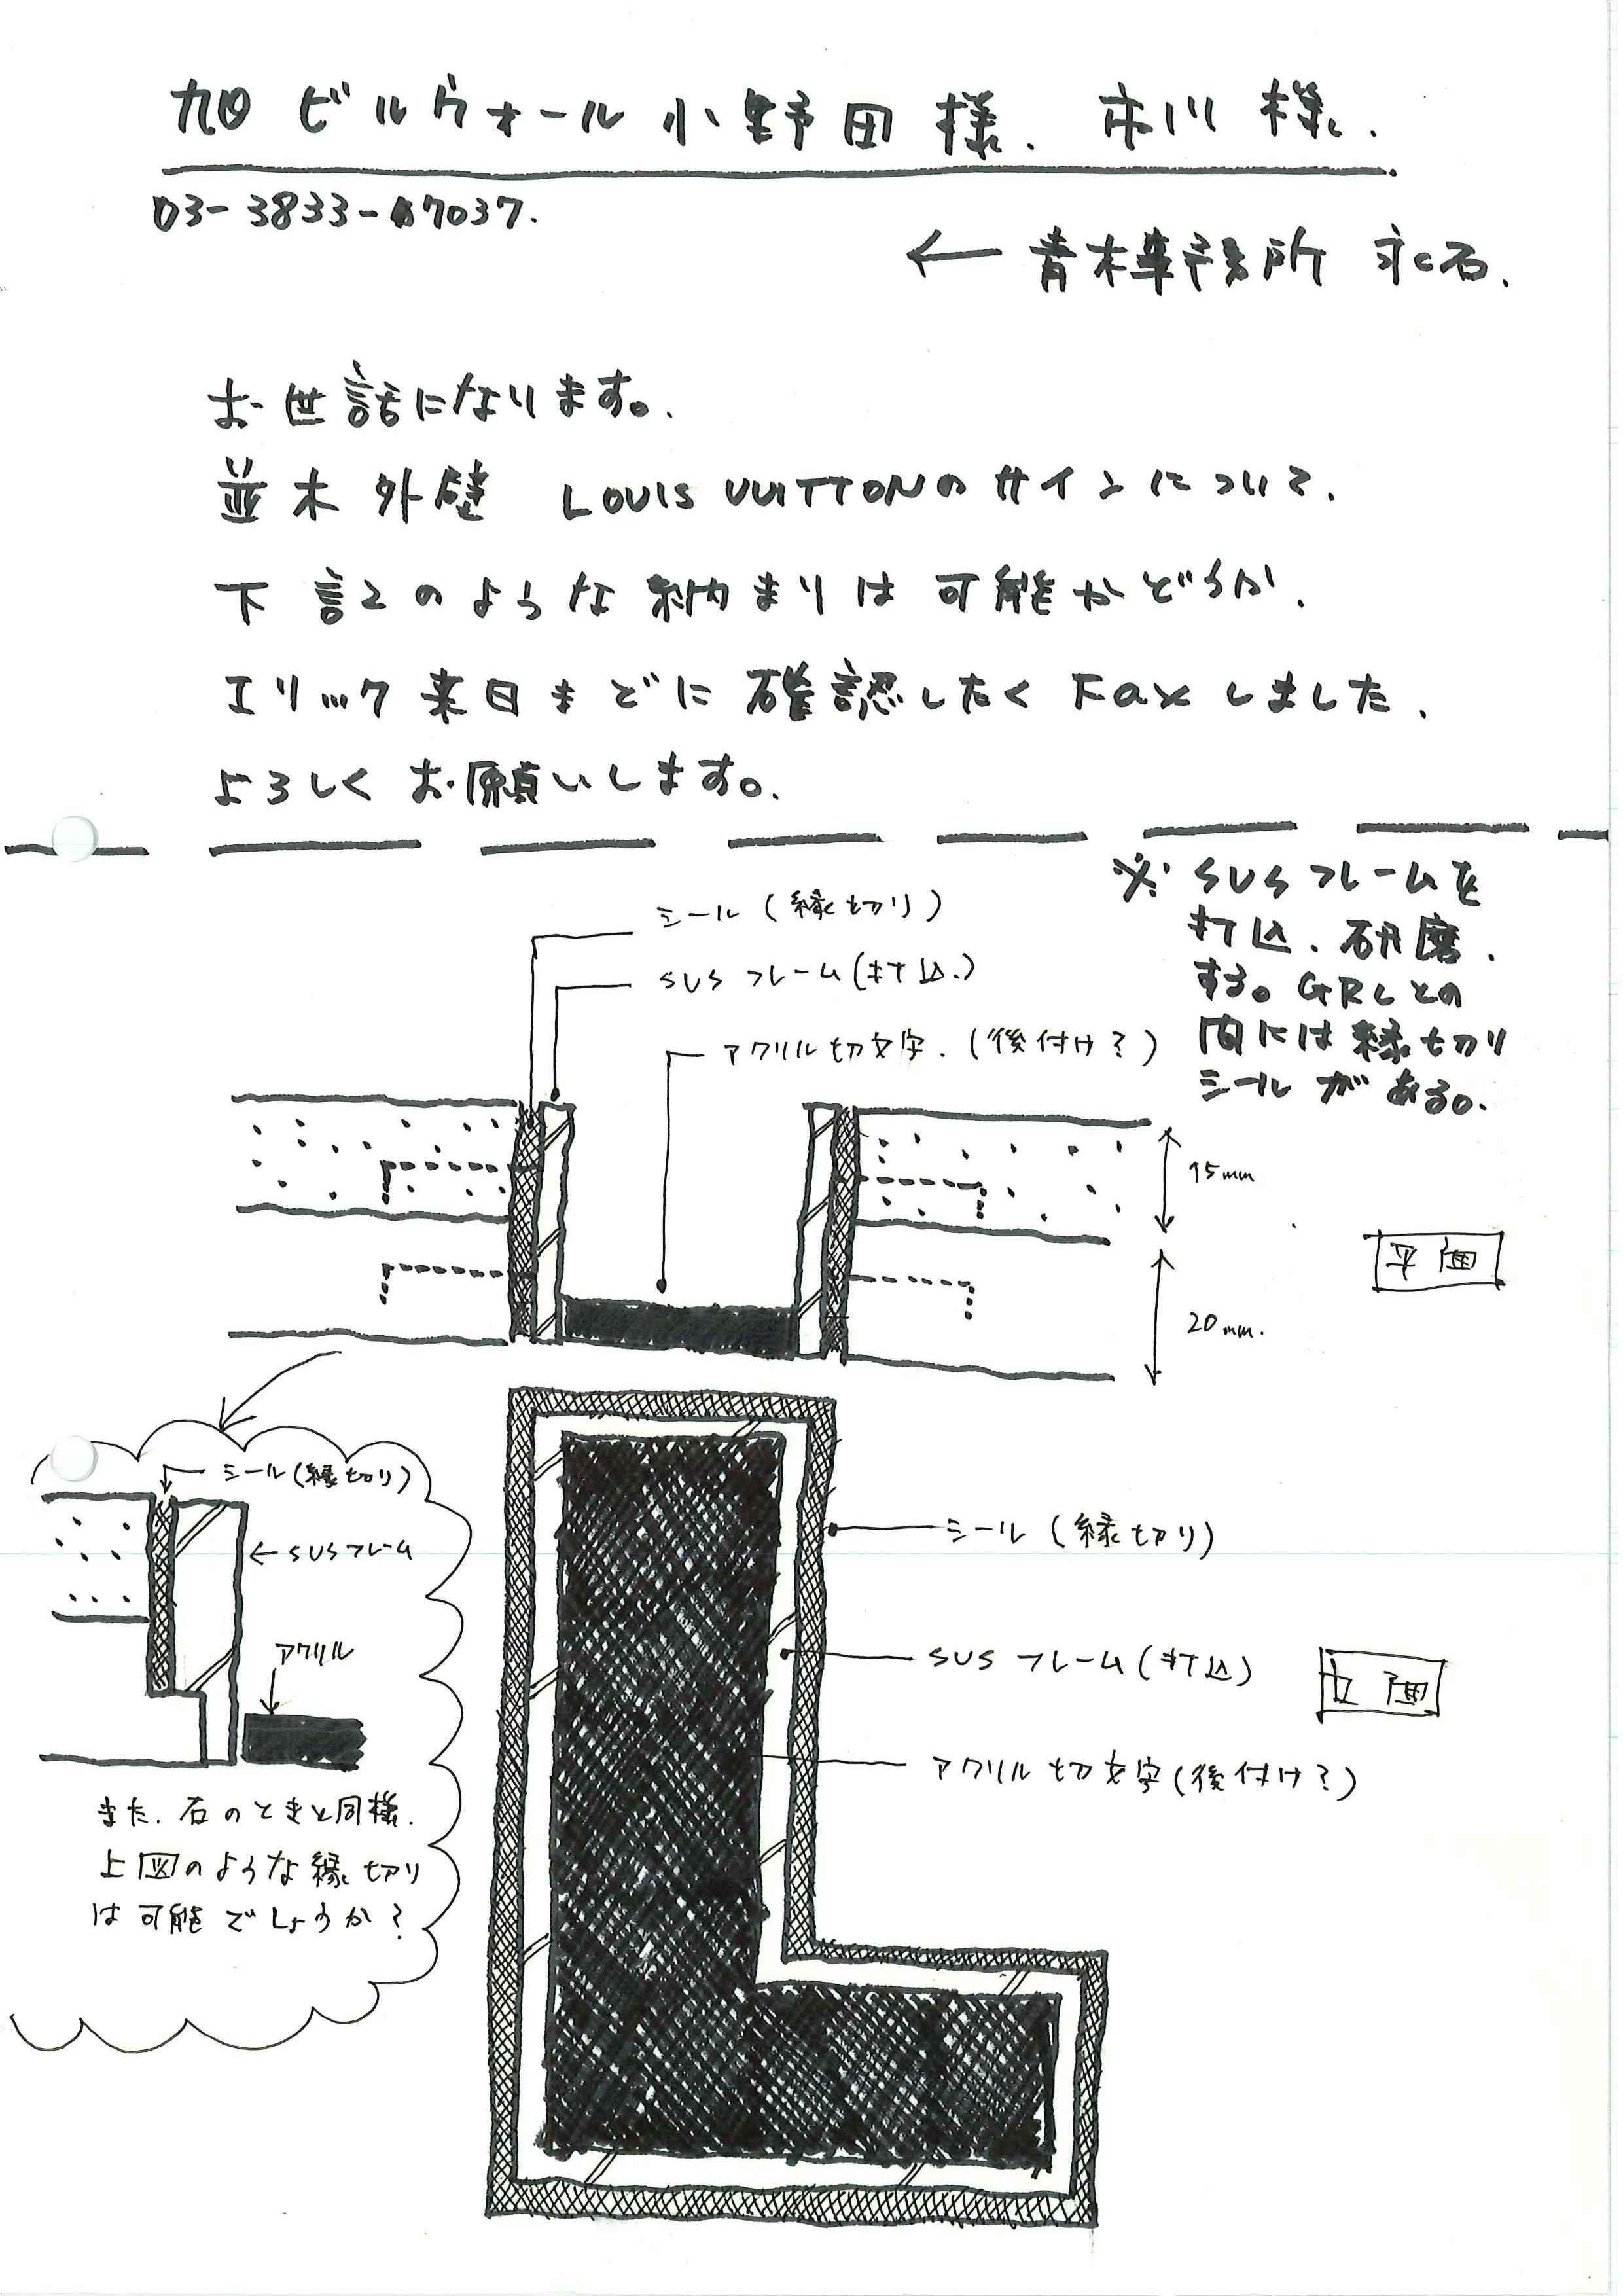 旭ビルウォール 小野田様. 市川様.
03-3833-7037.
← 青木淳事務所 永石.
お世話になります。
並木外壁 LOUIS VUITTONのサインについて.
下記のような納まりは可能かどうか.
エリック来日までに確認したくFaxしました.
よろしくお願いします。
※ SUSフレームを
打込、研磨.
する。GRCとの
間には縁切り
シールがある。
シール(縁切り)
SUSフレーム(打込.)
アクリル切文字.(後付け?)
15mm
平面
20mm.
シール(縁切り)
←SUSフレーム
アクリル
また、石のときと同様.
上図のような縁切り
は可能でしょうか?
シール(縁切り)
SUSフレーム(打込)
立面
アクリル切文字(後付け?)